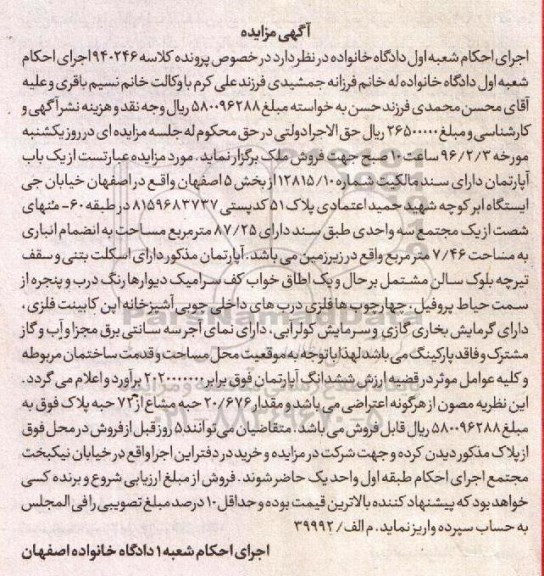 آگهی مزایده
اجرای احکام شعبه اول دادگاه خانواده در نظر دارد در خصوص پرونده کلاسه ۹۴۰۲۴۶ اجرای احکام
شعبه اول دادگاه خانواده له خانم فرزانه جمشیدی فرزند علی کرم با وکالت خانم نسیم باقری و علیه
آقای محسن محمدی فرزند حسن به خواسته مبلغ ۵۸۰۰۹۶۲۸۸ ریال وجه نقد و هزینه نشر آگهی و
کارشناسی و مبلغ ۲۶۵۰۰۰۰۰ ریال حق الاجرا دولتی در حق محکوم له جلسه مزایده ای در روز یکشنبه
مورخه ۹۶/۲/۳ ساعت ۱۰ صبح جهت فروش ملک برگزار نماید. مورد مزایده عبارتست از یک باب
آپارتمان دارای سند مالکیت شماره ۱۲۸۱۵/۱۰ از بخش ۵ اصفهان واقع در اصفهان خیابان جی
ایستگاه ابر کوچه شهید حمید اعتمادی پلاک ۵۱ کدپستی ۸۱۵۹۶۸۳۷۳۷ در طبقه ۶۰- منهای
شصت از یک مجتمع سه واحدی طبق سند دارای ۸۷/۲۵ متر مربع مساحت به انضمام انباری
به مساحت ۷/۴۶ متر مربع واقع در زیرزمین می باشد. آپارتمان مذکور دارای اسکلت بتنی و سقف
تیرچه بلوک سالن مشتمل بر حال و یک اطاق خواب کف سرامیک دیوارها رنگ درب و پنجره از
سمت حیاط پروفیل، چهارچوب ها فلزی درب های داخلی چوبی آشپزخانه اپن کابینت فلزی،
دارای گرمایش بخاری گازی و سرمایش کولر آبی، دارای نمای آجر سه سانتی برق مجزا و آب و گاز
مشترک و فاقد پارکینگ می باشد لهذا با توجه به موقعیت محل مساحت و قدمت ساختمان مربوطه
و کلیه عوامل موثر در قضیه ارزش ششدانگ آپارتمان فوق برابر ۲۰۲۰۰۰۰۰۰۰ برآورد و اعلام می گردد.
این نظریه مصون از هرگونه اعتراضی می باشد و مقدار ۲۰/۶۷۶ حبه مشاع از ۷۲ حبه پلاک فوق به
مبلغ ۵۸۰۰۹۶۲۸۸ ریال قابل فروش می باشد. متقاضیان می توانند ۵ روز قبل از فروش در محل فوق
از پلاک مذکور دیدن کرده و جهت شرکت در مزایده و خرید در دفتر این اجرا واقع در خیابان نیکبخت
مجتمع اجرای احکام طبقه اول واحد یک حاضر شوند. فروش از مبلغ ارزیابی شروع و برنده کسی
خواهد بود که پیشنهاد کننده بالاترین قیمت بوده و حداقل ۱۰ درصد مبلغ تصویبی را فی المجلس
به حساب سپرده واریز نماید. م الف/ ۳۹۹۹۲
اجرای احکام شعبه ۱ دادگاه خانواده اصفهان
ParsNamadData